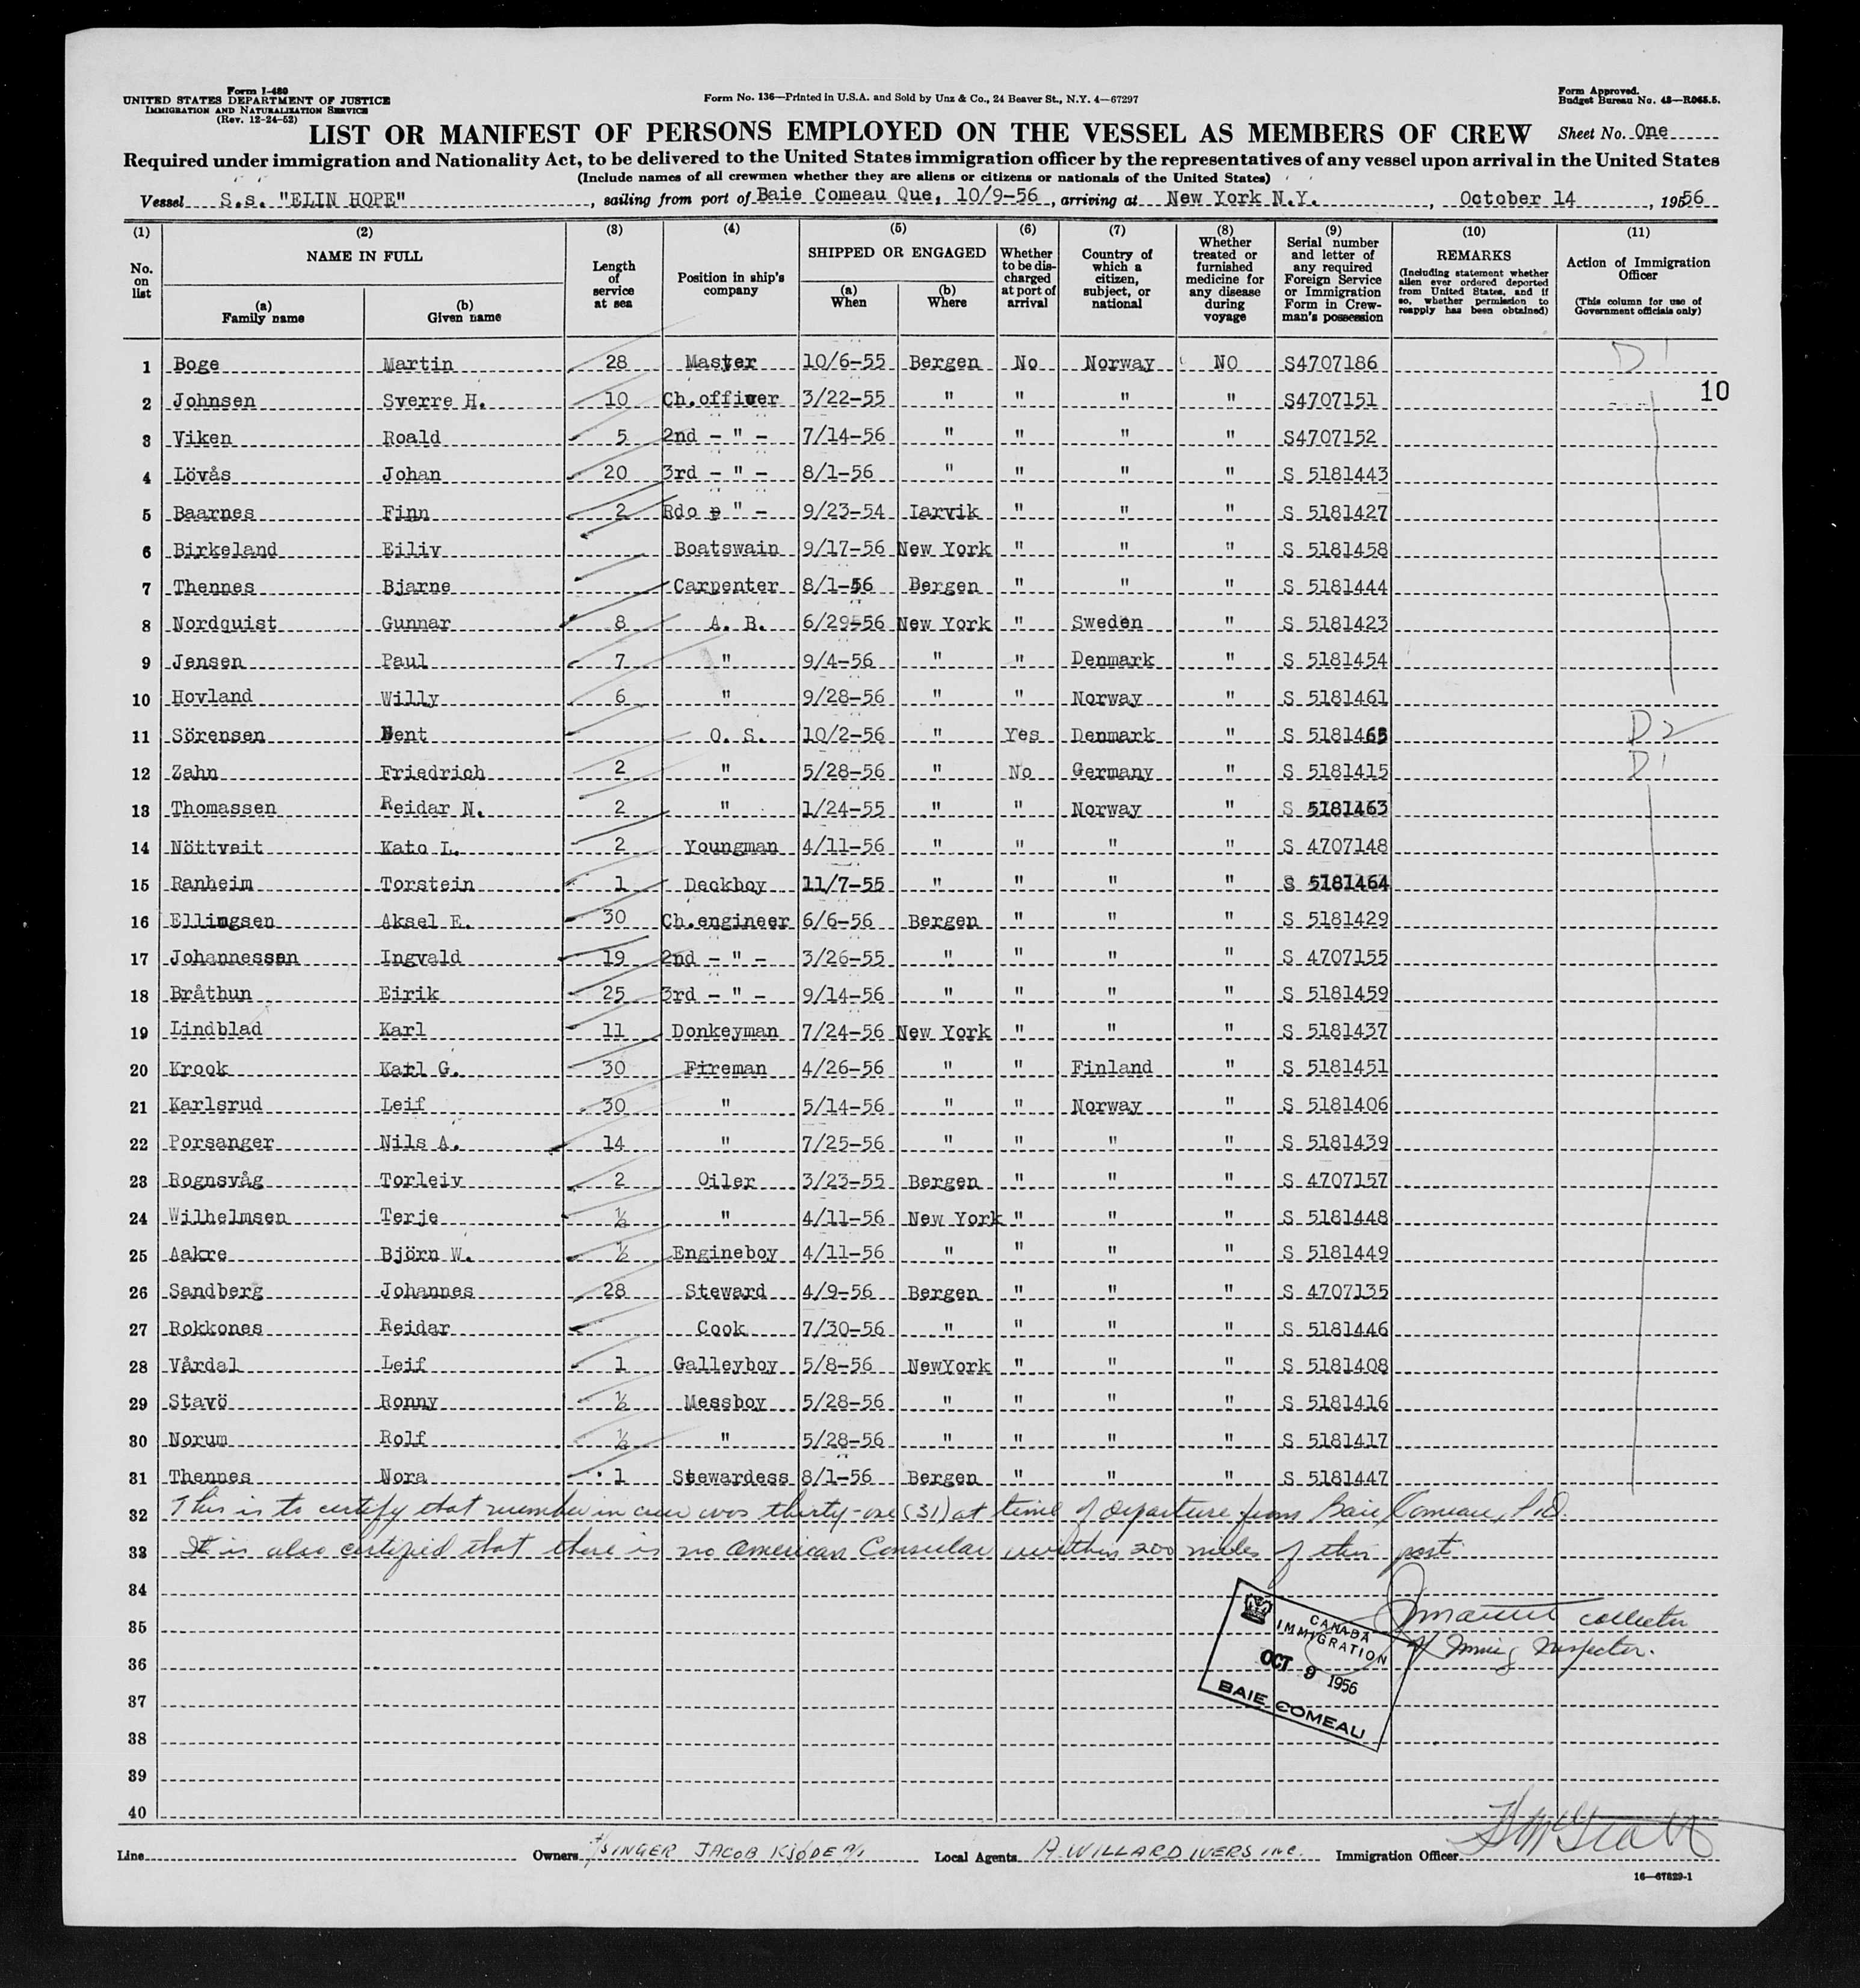 Form I-480
UNITED STATES DEPARTMENT OF JUSTICE
IMMIGRATION AND NATURALIZATION SERVICE
(Rev. 12-24-52)
Form No. 136—Printed in U.S.A. and Sold by Unz & Co., 24 Beaver St., N.Y. 4—67297
Form Approved.
Budget Bureau No. 43—R065.5.
LIST OR MANIFEST OF PERSONS EMPLOYED ON THE VESSEL AS MEMBERS OF CREW Sheet No. One
Required under immigration and Nationality Act, to be delivered to the United States immigration officer by the representatives of any vessel upon arrival in the United States
(Include names of all crewmen whether they are aliens or citizens or nationals of the United States)
Vessel S.s. "ELIN HOPE", sailing from port of Baie Comeau Que, 10/9-56, arriving at New York N.Y., October 14, 1956
(1) No. on list (2) NAME IN FULL (a) Family name (b) Given name (3) Length of service at sea (4) Position in ship's company (5) SHIPPED OR ENGAGED (a) When (b) Where (6) Whether to be discharged at port of arrival (7) Country of which a citizen, subject, or national (8) Whether treated or furnished medicine for any disease during voyage (9) Serial number and letter of any required Foreign Service or Immigration Form in Crewman's possession (10) REMARKS (Including statement whether alien ever ordered deported from United States, and if so, whether permission to reapply has been obtained) (11) Action of Immigration Officer (This column for use of Government officials only)
1 Boge Martin 28 Master 10/6-55 Bergen No Norway NO S4707186 D1
10
2 Johnsen Sverre H. 10 Ch.officer 3/22-55 " " " " S4707151
3 Viken Roald 5 2nd - " - 7/14-56 " " " " S4707152
4 Lövås Johan 20 3rd - " - 8/1-56 " " " " S 5181443
5 Baarnes Finn 2 Rdo " - 9/23-54 Larvik " " " S 5181427
6 Birkeland Eiliv Boatswain 9/17-56 New York " " " S 5181458
7 Thennes Bjarne Carpenter 8/1-56 Bergen " " " S 5181444
8 Nordquist Gunnar 8 A. B. 6/29-56 New York " Sweden " S 5181423
9 Jensen Paul 7 " 9/4-56 " " Denmark " S 5181454
10 Hovland Willy 6 " 9/28-56 " " Norway " S 5181461
11 Sörensen Bent O. S. 10/2-56 " Yes Denmark " S 5181465 D2
12 Zahn Friedrich 2 " 5/28-56 " No Germany " S 5181415 D1
13 Thomassen Reidar N. 2 " 1/24-55 " " Norway " S 5181463
14 Nöttveit Kato L. 2 Youngman 4/11-56 " " " " S 4707148
15 Ranheim Torstein 1 Deckboy 11/7-55 " " " " S 5181464
16 Ellingsen Aksel E. 30 Ch.engineer 6/6-56 Bergen " " " S 5181429
17 Johannessen Ingvald 19 2nd - " - 3/26-55 " " " " S 4707155
18 Bråthun Eirik 25 3rd - " - 9/14-56 " " " " S 5181459
19 Lindblad Karl 11 Donkeyman 7/24-56 New York " " " S 5181437
20 Krook Karl G. 30 Fireman 4/26-56 " " Finland " S 5181451
21 Karlsrud Leif 30 " 5/14-56 " " Norway " S 5181406
22 Porsanger Nils A. 14 " 7/25-56 " " " " S 5181439
23 Rognsvåg Torleiv 2 Oiler 3/23-55 Bergen " " " S 4707157
24 Wilhelmsen Terje ½ " 4/11-56 New York " " " S 5181448
25 Aakre Björn W. ½ Engineboy 4/11-56 " " " " S 5181449
26 Sandberg Johannes 28 Steward 4/9-56 Bergen " " " S 4707135
27 Rokkones Reidar Cook 7/30-56 " " " " S 5181446
28 Vårdal Leif 1 Galleyboy 5/8-56 NewYork " " " S 5181408
29 Stavö Ronny ½ Messboy 5/28-56 " " " " S 5181416
30 Norum Rolf ½ " 5/28-56 " " " " S 5181417
31 Thennes Nora 1 Stewardess 8/1-56 Bergen " " " S 5181447
32 This is to certify that number in crew was thirty-one (31) at time of departure from Baie Comeau, P.Q.
33 It is also certified that there is no American Consular within 200 miles of this port
34
35 collector
36 Immig Inspector.
CANADA
IMMIGRATION
OCT 9 1956
BAIE COMEAU
37
38
39
40
Line Owners SINGER JACOB KJØDE A/S Local Agents A. WILLARD IVERS INC. Immigration Officer
16—67829-1